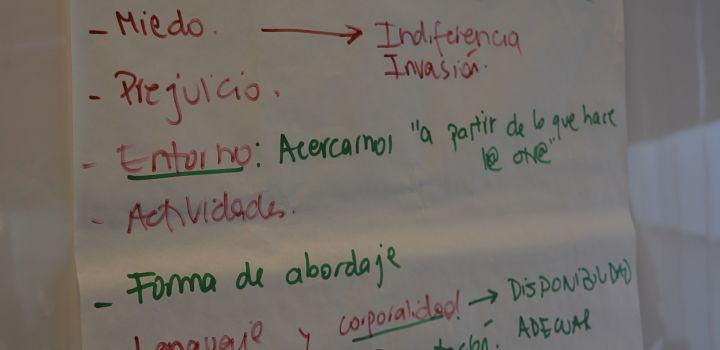 - Miedo. → Indiferencia
Invasión.
- Prejuicio.
- Entorno: Acercarnos "a partir de lo que hace
l@ otr@"
- Actividades.
- Forma de abordaje
Lenguaje y corporalidad → DISPONIBILIDAD
ADECUAR